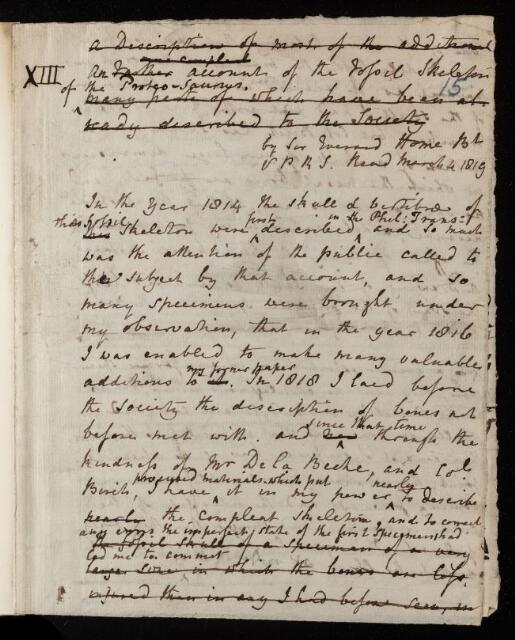 a Description of most of the additional
more compleat
XIII an Further account of the Fossil Skeleton
of the Proteo-Saurus. 15
many parts of which have been al-
ready described to the Society
by Sir Everard Home Bt
V P R S. Read March 4 1819
In the year 1814 the skull & vertibræ of
this fossil first in the Phil: Trans:
Skeleton were described and so much
was the attention of the public called to
the subject by that account, and so
many specimens were brought under
my observation, that in the year 1816
I was enabled to make many valuable
my former paper
additions to it. In 1818 I laid before
the Society the description of bones not
since that time
before met with. and through the
kindness of Mr De la Beche, and Col
procured materials which put nearly
Birch, I have it in my power to describe
nearly the compleat skeleton, and to correct
any errors the imperfect state of the first specimens had
the fossil skull of a specimen of a very
led me to commit
larger size in which the bones are less
injured than in any I had before seen, in